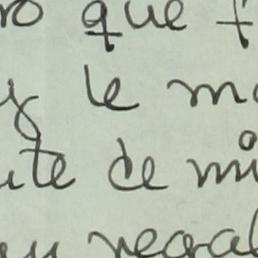 ro que f
y le m
ute de mi
u regal